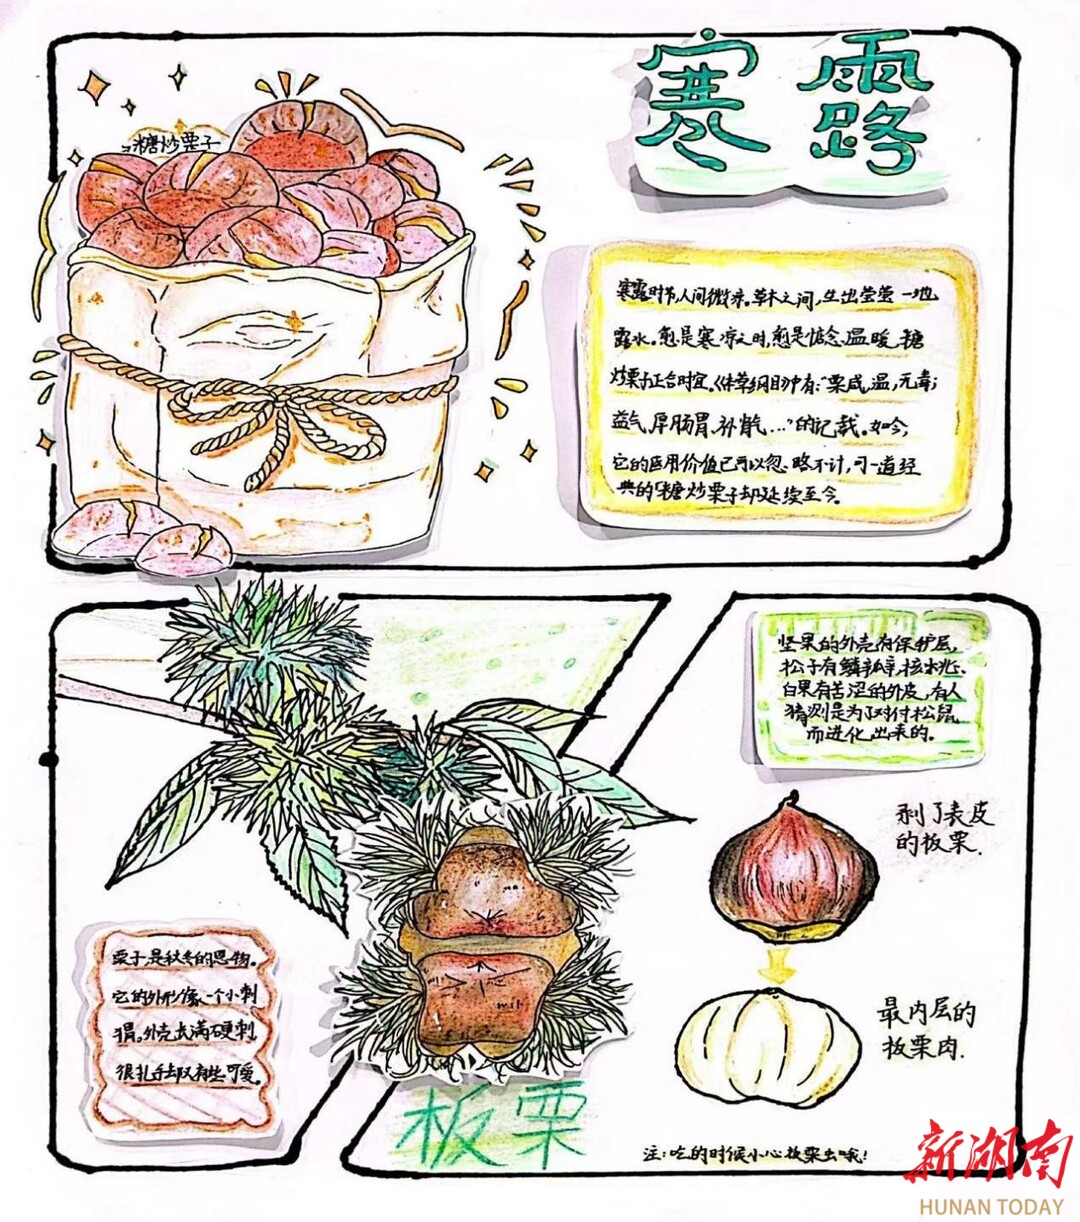 寒露
糖炒栗子
寒露时节,人间微凉。草木之间,生出莹莹一地
露水。愈是寒凉之时,愈是惦念温暖,糖
炒栗子正合时宜。《本草纲目》中有:“栗咸,温,无毒;
益气、厚肠胃、补肾气...”的记载。如今,
它的医用价值已可以忽略不计,可一道经
典的“糖炒栗子却延续至今。
坚果的外壳有保护层,
松子有鳞
白果有苦涩的外皮,有人
猜测是为了对付松鼠
而进化出来的。
剥了表皮
的板栗.
最内层的
板栗肉.
栗子是秋冬的恩物。
它的外形像一个小刺
猬。外壳长满硬刺,
很扎手却又有些可爱。
板栗
注:吃的时候小心板栗虫哦!
新湖南
HUNAN TODAY